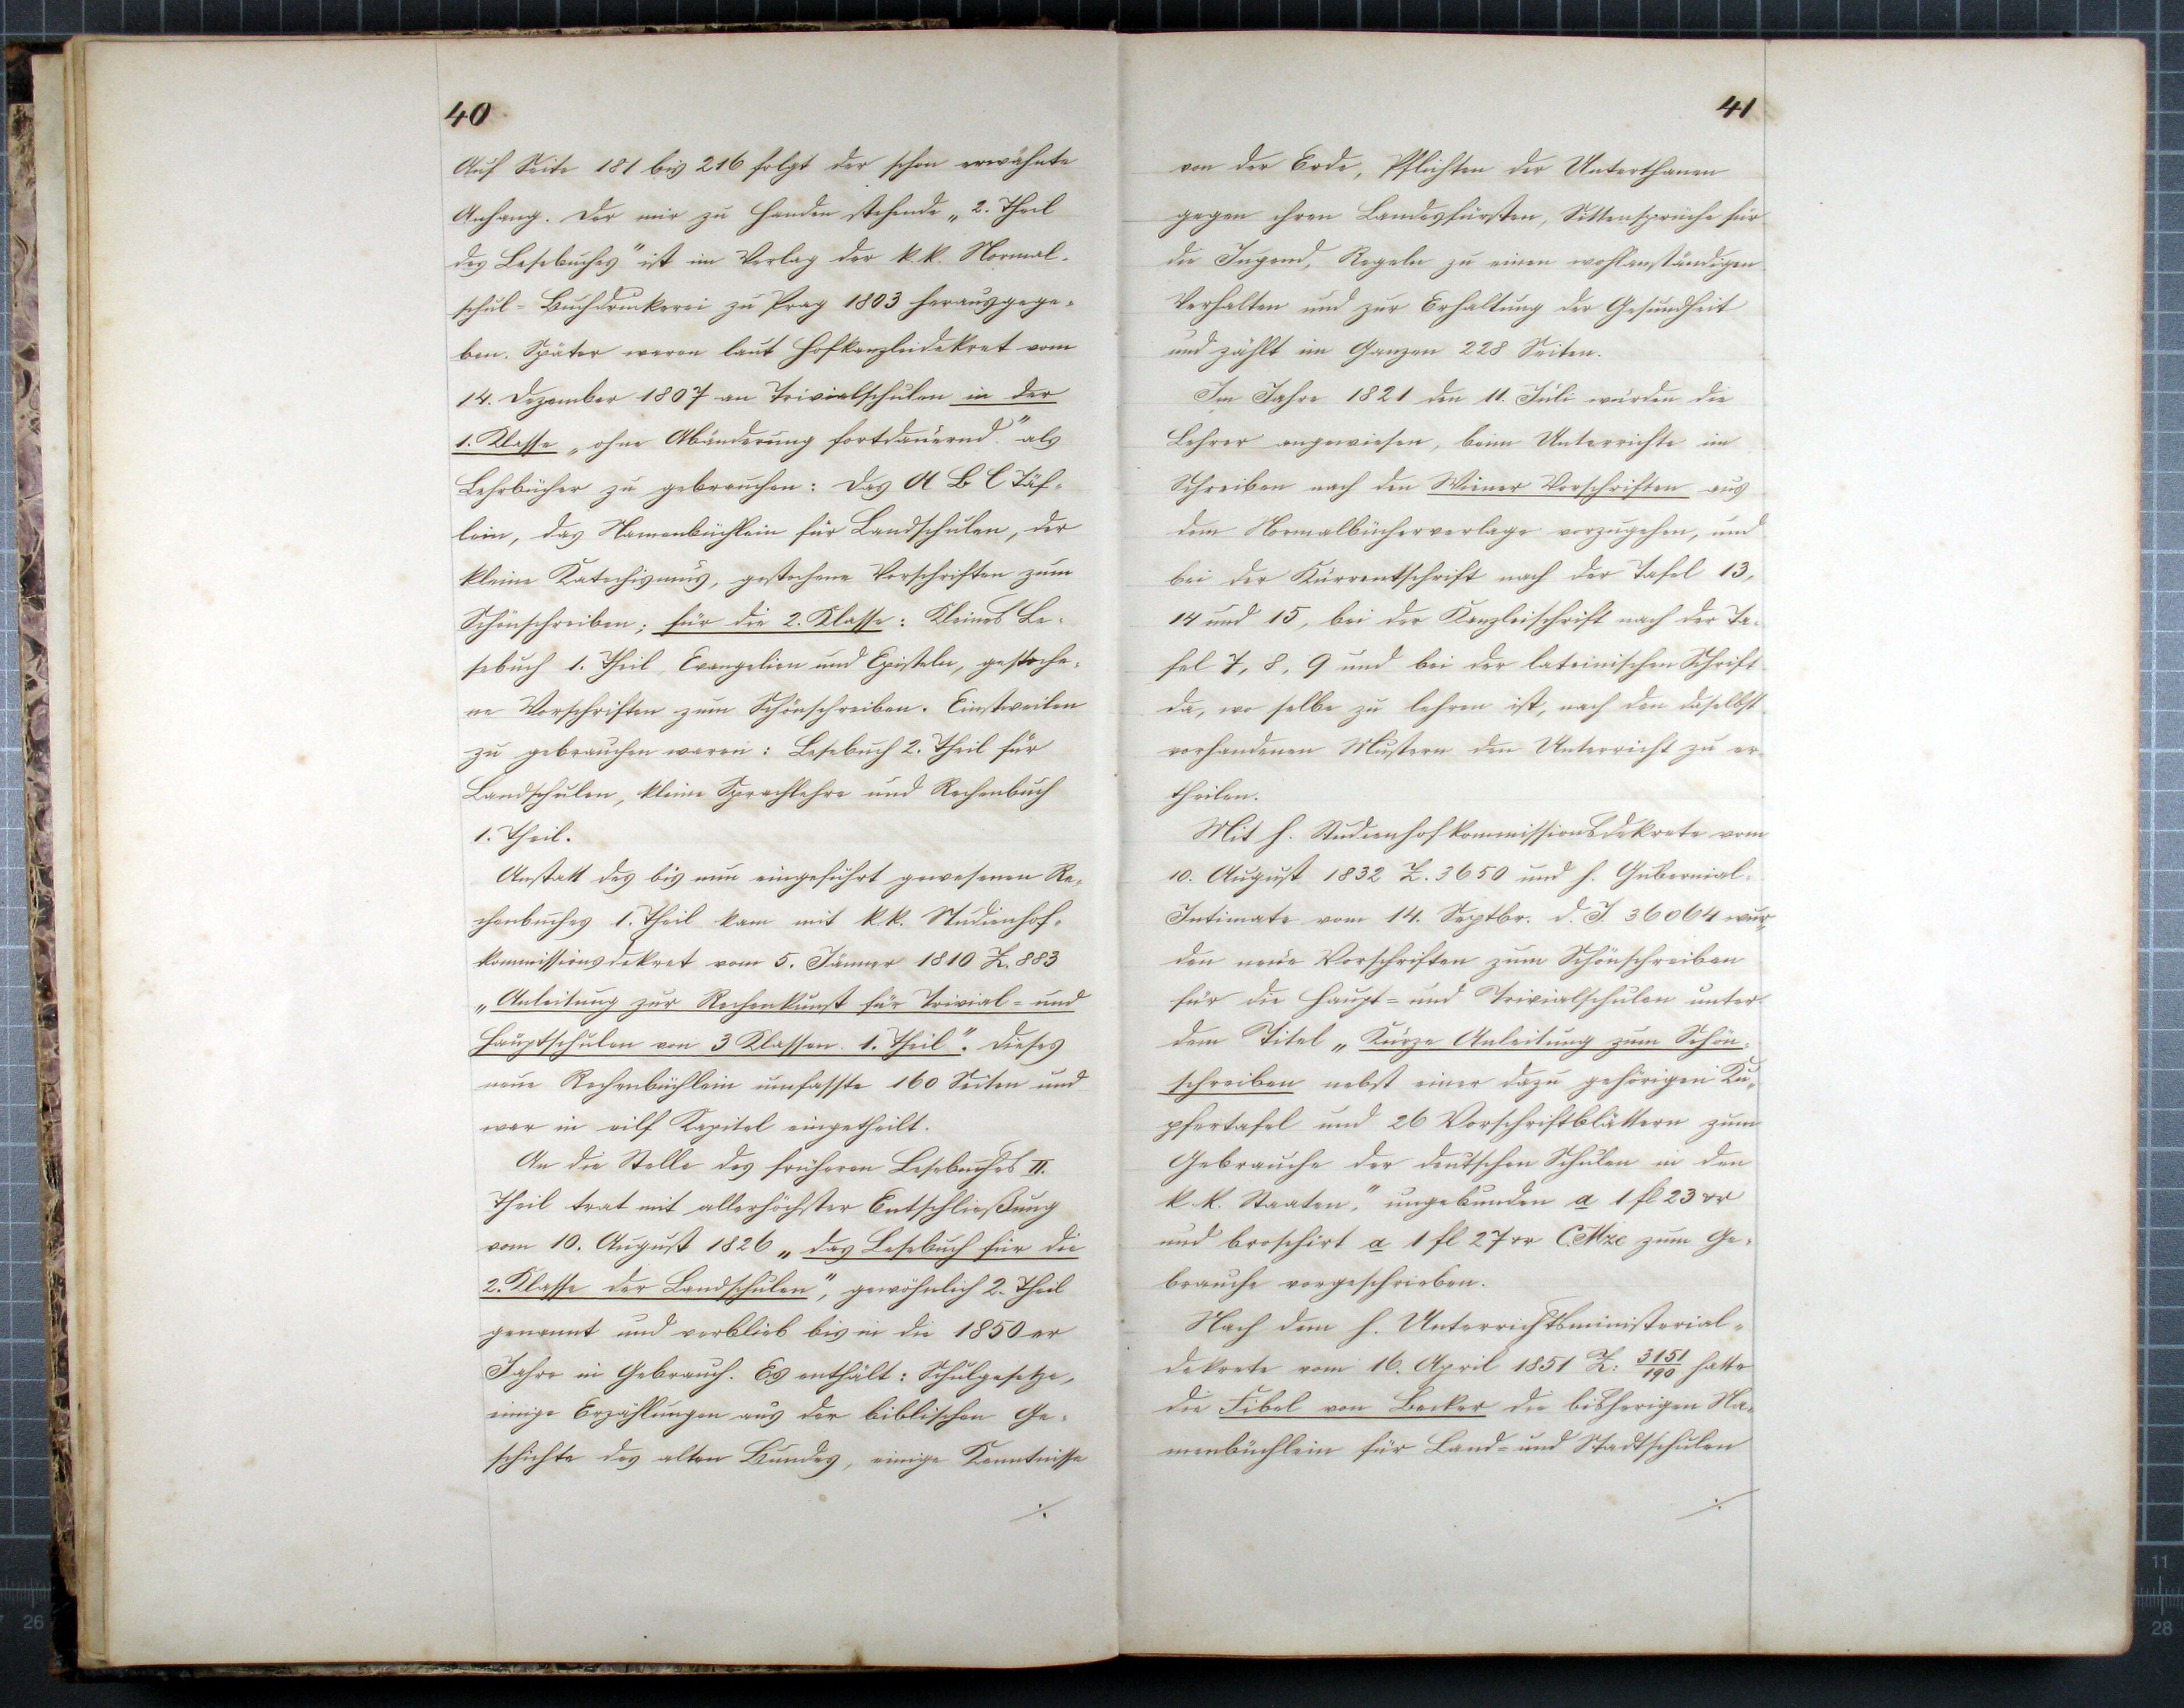 40
Auf Seite 181 bis 216 folgt der schon erwähnte
Anhang. Der mir zu Handen stehende „2. Theil
des Lesebuches" ist im Verlag der k. k. Normal-
schul-Buchdruckerei zu Prag 1803 herausgege-
ben. Später waren laut Hofkanzleidekret vom
14. Dezember 1807 an Trivialschulen in der
1. Klasse „ohne Abänderung fortdauernd" als
Lehrbücher zu gebrauchen: Das A B C Täf-
lein, das Namenbüchlein für Landschulen, der
kleine Katechismus, gestochene Vorschriften zum
Schönschreiben; für die 2. Klasse: Kleines Le-
sebuch 1. Theil, Evangelien und Episteln, gestoche-
ne Vorschriften zum Schönschreiben. Einstweilen
zu gebrauchen waren: Lesebuch 2. Theil für
Landschulen, kleine Sprachlehre und Rechenbuch
1. Theil.
Anstatt des bis nun eingeführt gewesenen Re-
chenbuches 1. Theil kam mit k.k. Studienhof-
kommissionsdekret vom 5. Jänner 1810 Z. 883
„Anleitung zur Rechenkunst für Trivial- und
Hauptschulen von 3 Klassen. 1. Theil". Dieses
neue Rechenbüchlein umfasste 160 Seiten und
war in eilf Kapitel eingetheilt.
An die Stelle des früheren Lesebuches II.
Theil trat mit allerhöchster Entschließung
vom 10. August 1826 „das Lesebuch für die
2. Klasse der Landschulen", gewöhnlich 2. Theil
genannt und verblieb bis in die 1850er
Jahre in Gebrauch. Es enthält: Schulgesetze,
einige Erzählungen aus der biblischen Ge-
schichte des alten Bundes, einige Kenntnisse
./.
41
von der Erde, Pflichten der Unterthanen
gegen ihren Landesfürsten, Sittensprüche für
die Jugend, Regeln zu einen wohlanständigen
Verhalten und zur Erhaltung der Gesundheit
und zählt im Ganzen 228 Seiten.
Im Jahre 1821 den 11. Juli wurden die
Lehrer angewiesen, beim Unterrichte im
Schreiben nach den Wiener Vorschriften aus
dem Normalbücherverlage vorzugehen, und
bei der Kurrentschrift nach der Tafel 13,
14 und 15, bei der Kanzleischrift nach der Ta-
fel 7, 8, 9 und bei der lateinischen Schrift
da, wo selbe zu lehren ist, nach den daselbst
vorhandenen Mustern den Unterricht zu er-
theilen.
Mit h. Studienhofkommissionsdekrete vom
10. August 1832 Z. 3650 und h. Gubernial-
Intimate vom 14. Septbr. d. J. 36064 wur-
den neue Vorschriften zum Schönschreiben
für die Haupt- und Trivialschulen unter
dem Titel „Kurze Anleitung zum Schön-
schreiben nebst einer dazu gehörigen Ku-
pfertafel und 26 Vorschriftblättern zum
Gebrauche der deutschen Schulen in den
k. k. Staaten," ungebunden a 1 fl 23 xr
und broschirt a 1 fl 27 xr C.Mze zum Ge-
brauche vorgeschrieben.
Nach dem h. Unterrichtsministerial-
dekrete vom 16. April 1851 Z: 3151/190 hatte
die Fibel von Becker die bisherigen Na-
menbüchlein für Land- und Stadtschulen
./.
11
26
28